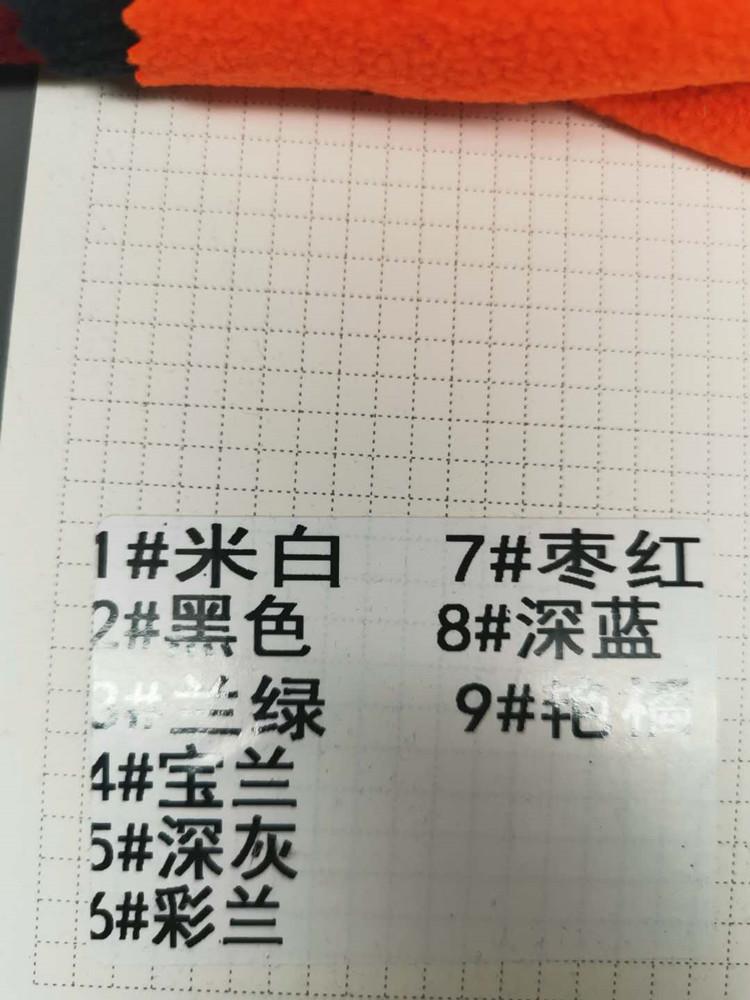 1#米白 7#枣红
2#黑色 8#深蓝
3#兰绿 9#艳橘
4#宝兰
5#深灰
6#彩兰